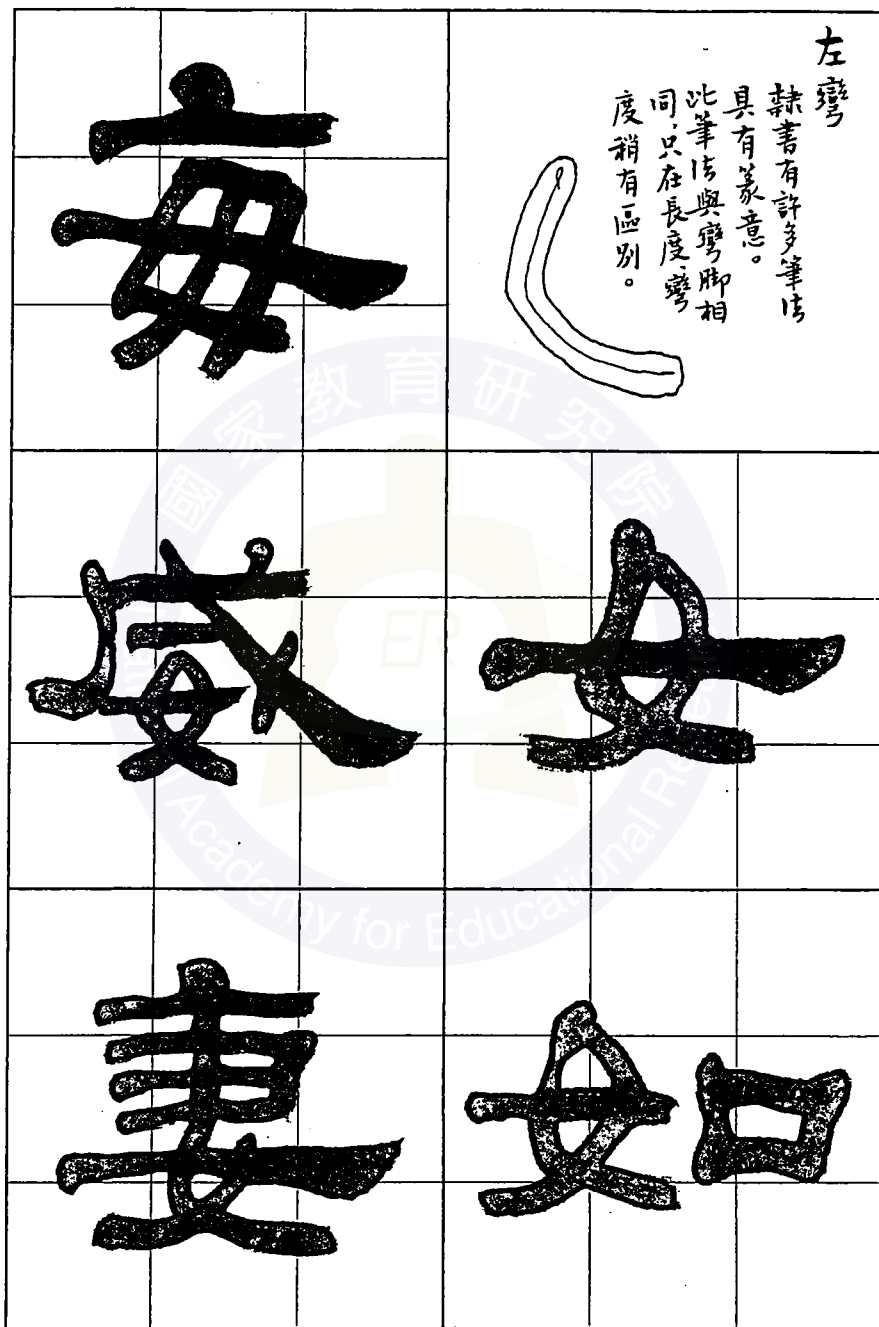 左彎
隸書有許多筆法
具有篆意。
此筆法與彎腳相
同，只在長度、彎
度稍有區別。
女
如
每
威
妻
國家教育研究院
National Academy for Educational Research
ER